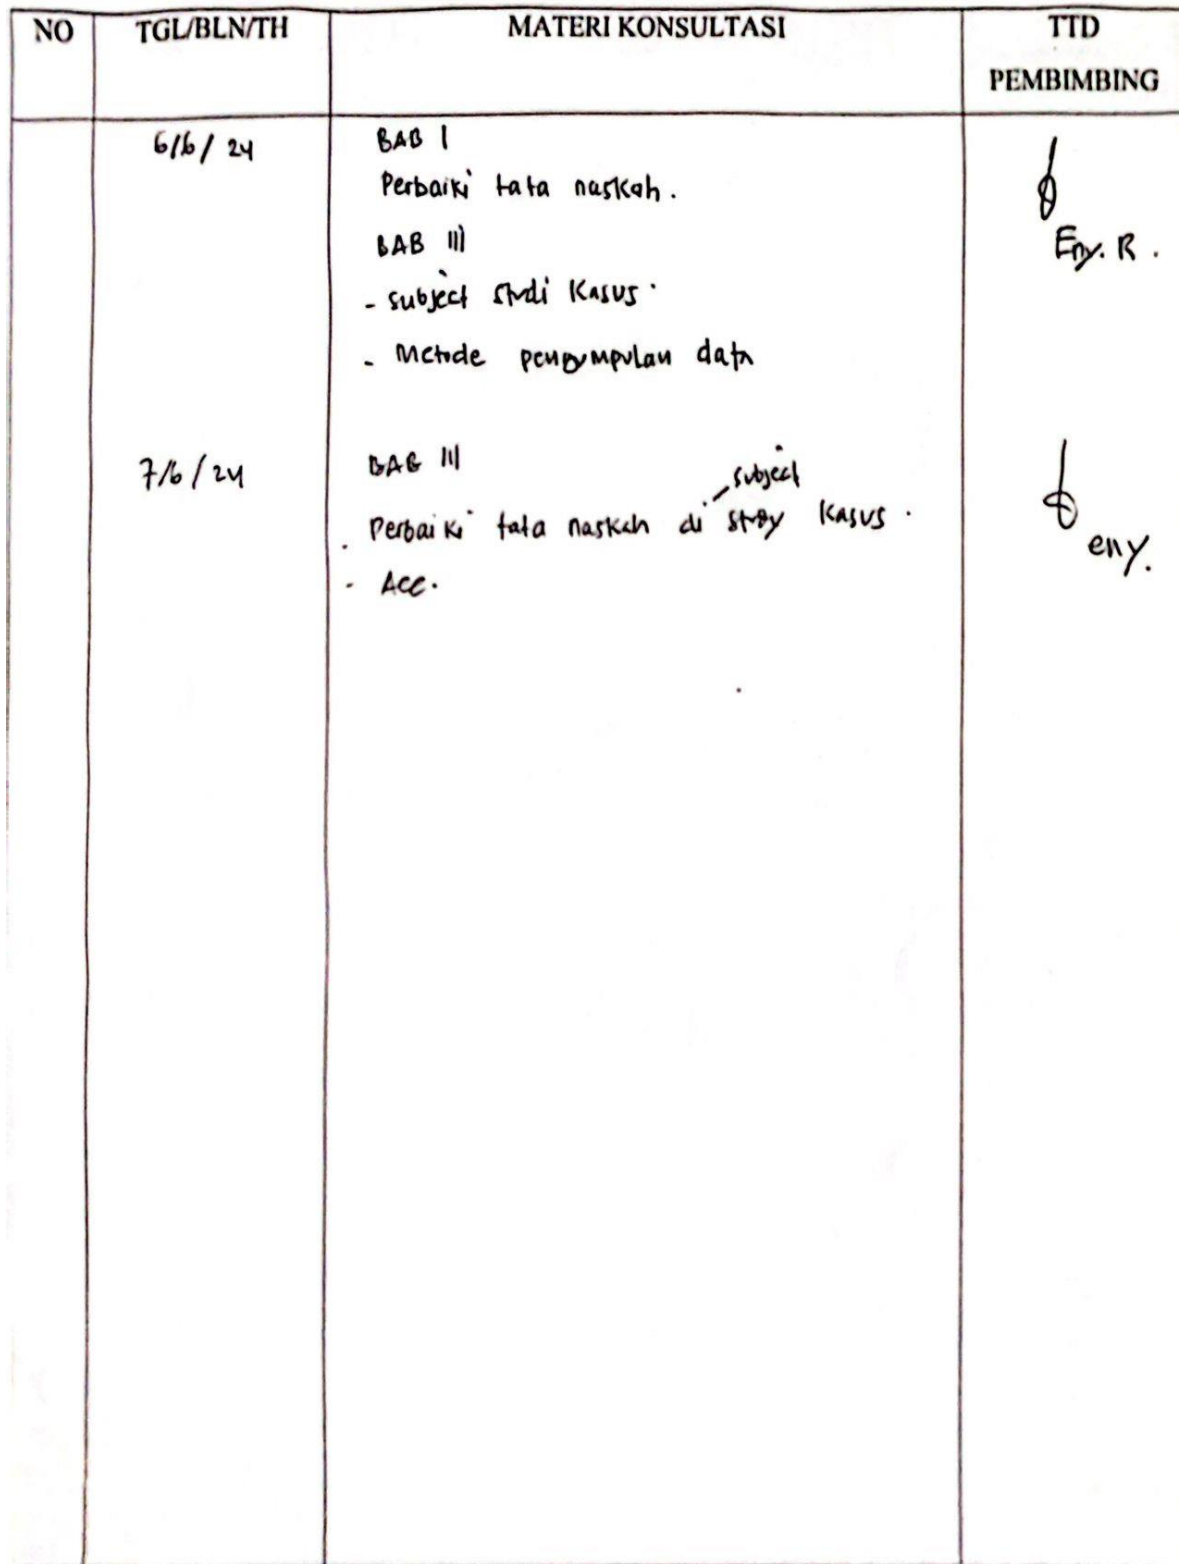 NO TGL/BLN/TH MATERI KONSULTASI TTD PEMBIMBING
6/6/24 BAB I
Perbaiki tata naskah.
BAB III
Eny. R.
- subject studi kasus.
- Metode pengumpulan data
7/6/24 BAB III
subject
. Perbaiki tata naskah di study kasus.
eny.
- Acc.